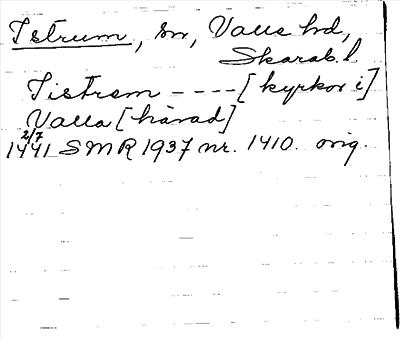 Istrum, sn, Valle hd,
Skarab. l.
Tistrem ---- [kyrkor i]
Valla [härad]
2/7
1441 SMR 1937 nr. 1410. orig.